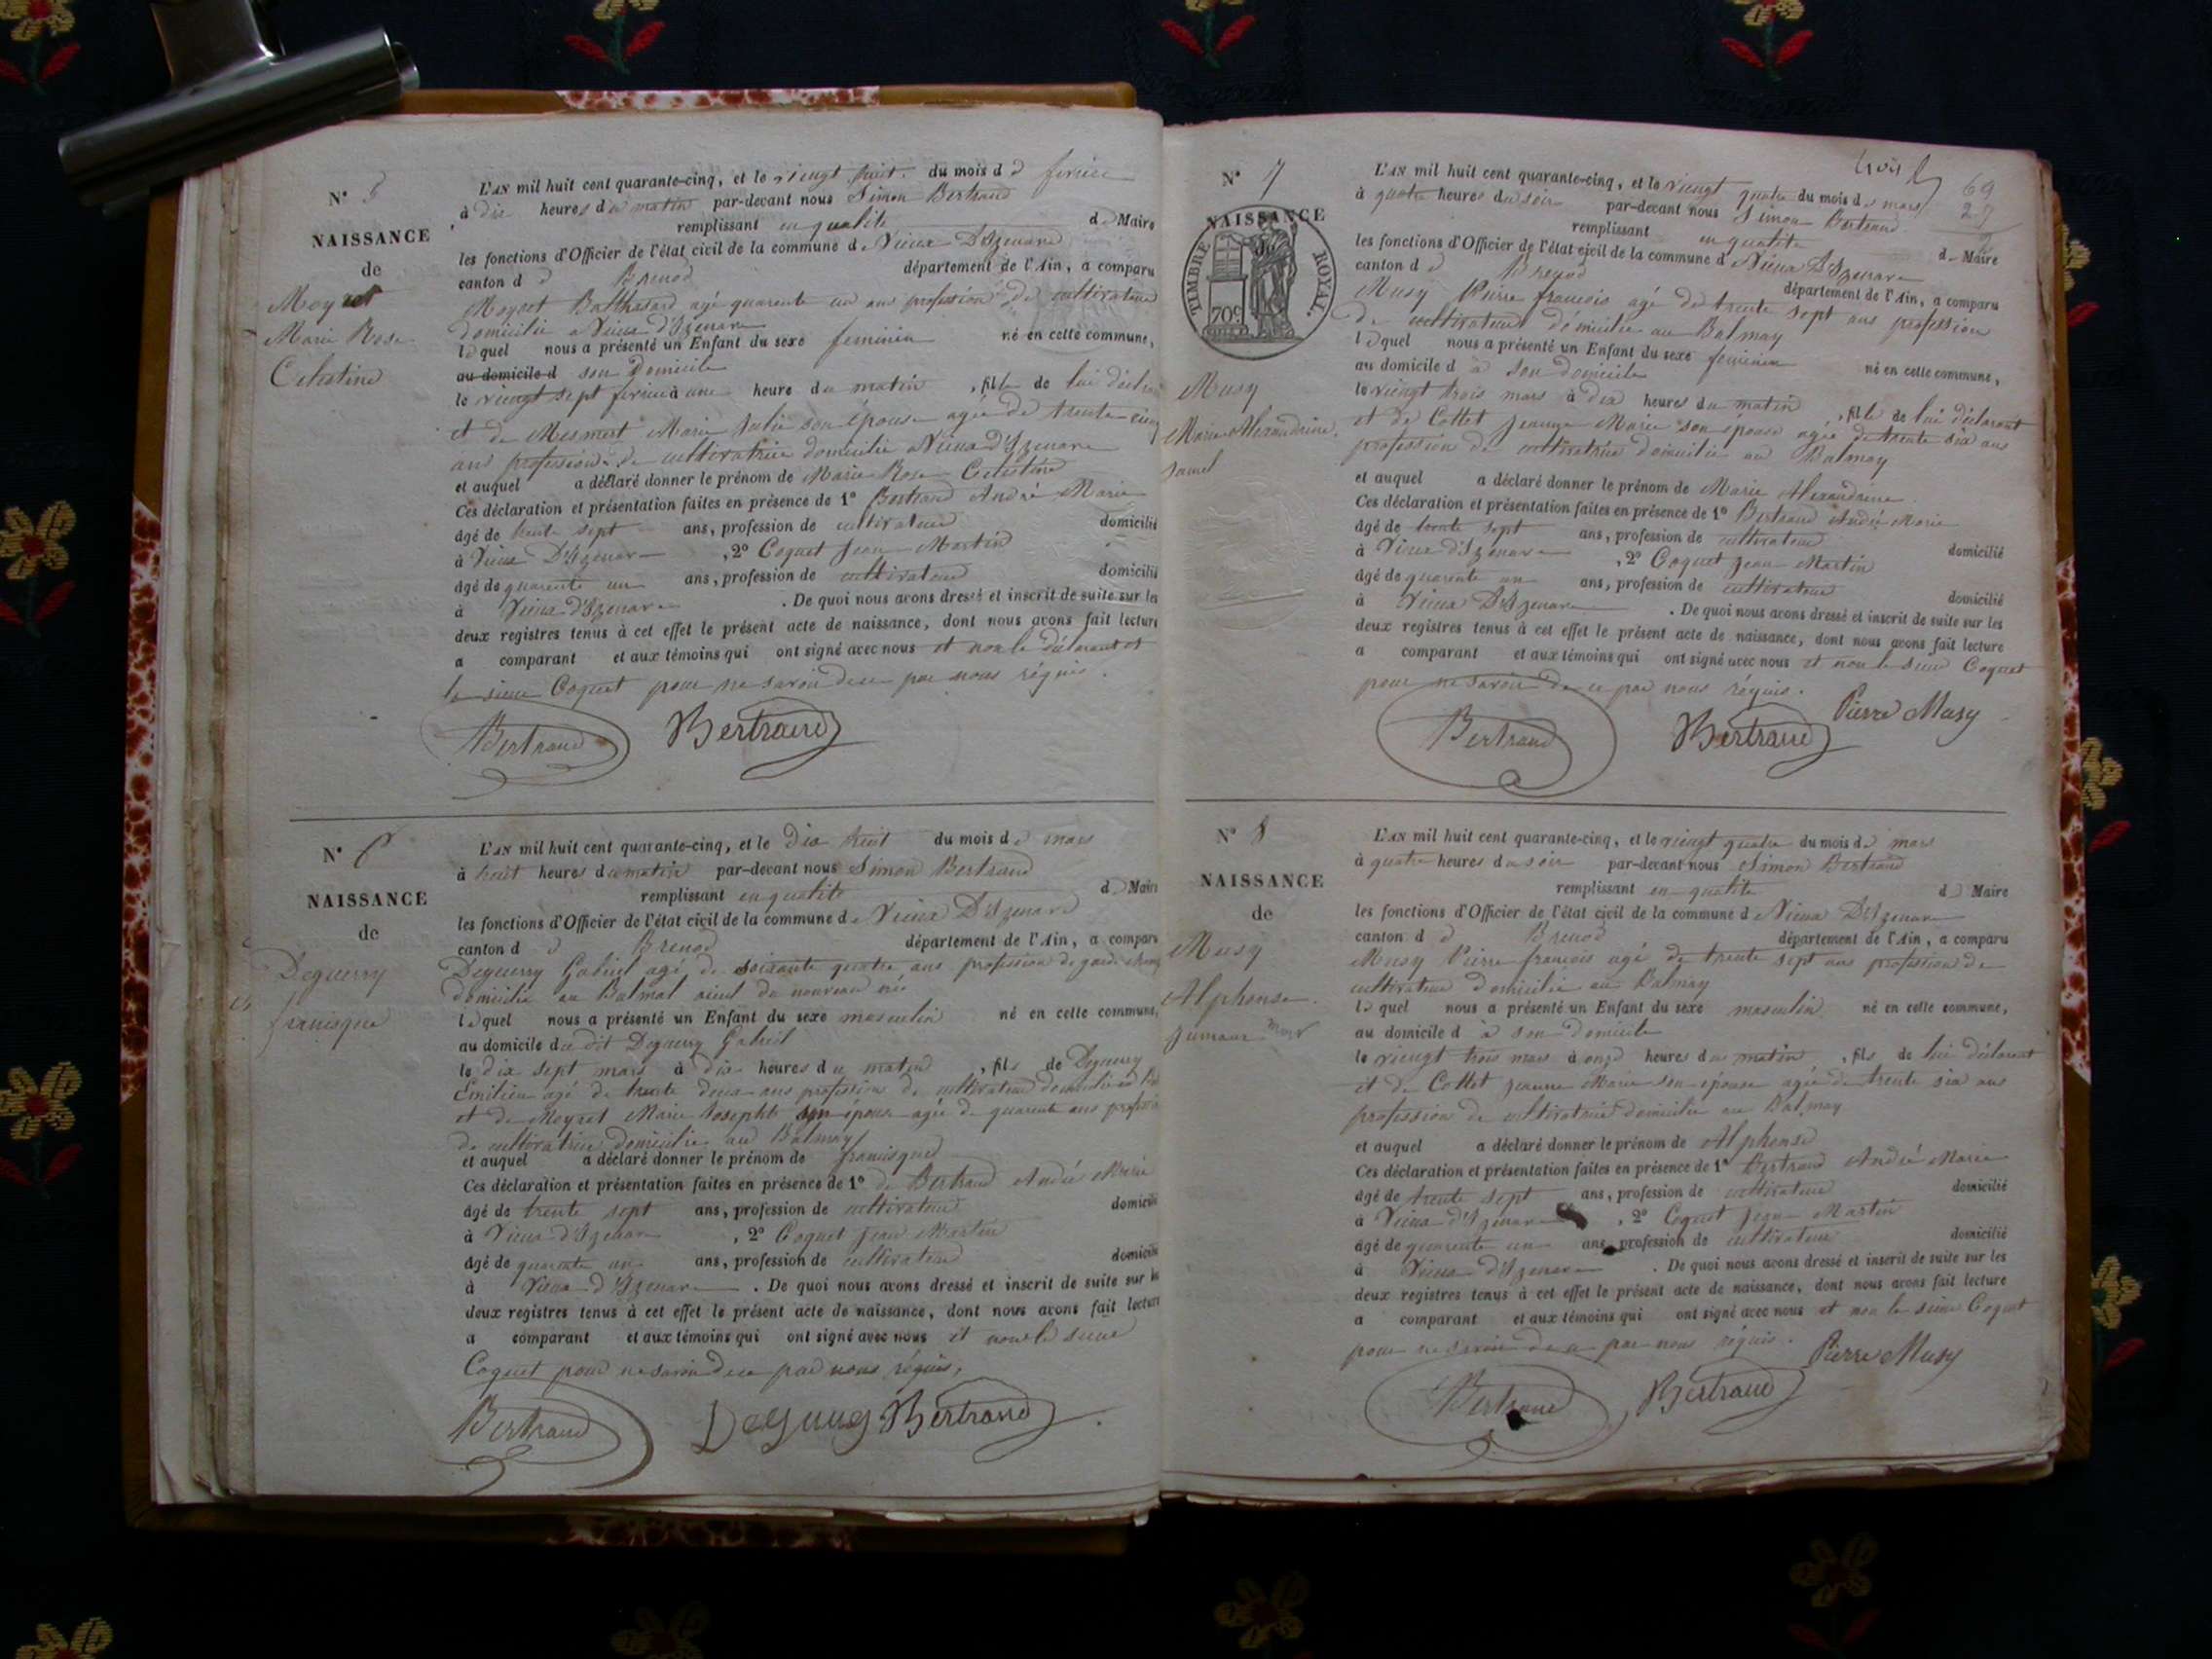 N° 5
NAISSANCE
de
Moyret
Marie Rose
Celestine
L'AN mil huit cent quarante-cinq, et le viengt huit du mois d e fevriée
à dix heures du matin par-devant nous Simon Bertrand
remplissant en qualité de Maire
les fonctions d'Officier de l'état civil de la commune de Vieux D'Izenave
canton d e Brenod département de l'Ain, a comparu
Moyret Balthasard agé quarente un ans profession de cultivateur
domicilié a Vieux d'Izenave
lequel nous a présenté un Enfant du sexe feminin né en cette commune,
au domicile d son Domicile
le viengt sept fevrier à une heure du matin, fille de lui déclarant
et de Mesmert Marie Julie son épouse agée de trente cinq
ans profession de cultivatrice domicilié a Vieux d'Izenave
et auquel a déclaré donner le prénom de Marie Rose Celestine
Ces déclaration et présentation faites en présence de 1° Bertrand André Marie
âgé de trente sept ans, profession de cultivateur domicilié
à Vieux D'Izenave, 2° Coquet Jean Martin
âgé de quarente un ans, profession de cultivateur domicilié
à Vieux d'Izenave. De quoi nous avons dressé et inscrit de suite sur les
deux registres tenus à cet effet le présent acte de naissance, dont nous avons fait lecture
a comparant et aux témoins qui ont signé avec nous et non le déclarant et
le sieur Coquet pour ne savoir de ce par nous réquis.
Bertrand Bertrand
N° 6
NAISSANCE
de
Deguerry
francisque
L'AN mil huit cent quarante-cinq, et le Dix huit du mois de mars
à huit heures du matin par-devant nous Simon Bertrand
remplissant en qualité de Maire
les fonctions d'Officier de l'état civil de la commune de Vieux D'Izenave
canton d e Brenod département de l'Ain, a comparu
Deguerry Gabriel agé de soixante quatre ans profession de garde
domicilié au Balmal aieul du nouveau né
lequel nous a présenté un Enfant du sexe masculin né en cette commune,
au domicile du dit Deguerry Gabriel
le dix sept mars à dix heures du matin, fils de Deguerry
Emilien agé de trente deux ans profession de cultivateur domicilié au
et de Moyret Marie Josephte son épouse agée de quarente ans profession
de cultivatrice domiciliée au Balmay
et auquel a déclaré donner le prénom de francisque
Ces déclaration et présentation faites en présence de 1° de Bertrand André Marie
âgé de trente sept ans, profession de cultivateur domicilié
à Vieux d'Izenave, 2° Coquet Jean Martin
âgé de quarente un ans, profession de cultivateur domicilié
à Vieux d'Izenave. De quoi nous avons dressé et inscrit de suite sur les
deux registres tenus à cet effet le présent acte de naissance, dont nous avons fait lecture
a comparant et aux témoins qui ont signé avec nous et non le sieur
Coquet pour ne savoir de ce par nous réquis,
Bertrand Deguerry Bertrand
trois
69
N° 7
NAISSANCE
TIMBRE ROYAL.
70c
Musy
Marie Alexandrine
L'AN mil huit cent quarante-cinq, et le viengt quatre du mois de mars
à quatre heures du soir par-devant nous Simon Bertrand
remplissant en qualité de Maire
les fonctions d'Officier de l'état civil de la commune d Vieux D'Izenave
canton d e Brenod département de l'Ain, a comparu
Musy Pierre francois agé de trente sept ans profession
de cultivateur domicilié au Balmay
lequel nous a présenté un Enfant du sexe feminin né en cette commune,
au domicile d à son domicile
le viengt trois mars à dix heures du matin, fille de lui déclarant
et de Cottet Jeanne Marie son épouse agée de trente six ans
profession de cultivatrice domicilié au Balmay
et auquel a déclaré donner le prénom de Marie Alexandrine
Ces déclaration et présentation faites en présence de 1° Bertrand André Marie
âgé de trente sept ans, profession de cultivateur domicilié
à Vieux d'Izenave, 2° Coquet Jean Martin
âgé de quarente un ans, profession de cultivateur domicilié
à Vieux D'Izenave. De quoi nous avons dressé et inscrit de suite sur les
deux registres tenus à cet effet le présent acte de naissance, dont nous avons fait lecture
a comparant et aux témoins qui ont signé avec nous et non le sieur Coquet
pour ne savoir de ce par nous réquis.
Pierre Musy
Bertrand Bertrand
N° 8
NAISSANCE
de
Musy
Alphonse
jumaux
L'AN mil huit cent quarante-cinq, et le viengt quatre du mois de mars
à quatre heures du soir par-devant nous Simon Bertrand
remplissant en qualité de Maire
les fonctions d'Officier de l'état civil de la commune de Vieux D'Izenave
canton d e Brenod département de l'Ain, a comparu
Musy Pierre francois agé de trente sept ans profession de
cultivateur domicilié au Balmay
lequel nous a présenté un Enfant du sexe masculin né en cette commune,
au domicile d à son domicile
le viengt trois mars à onze heures du matin, fils de lui déclarant
et de Cottet jeanne Marie son épouse agée de trente six ans
profession de cultivatrice domiciliée au Balmay
et auquel a déclaré donner le prénom de Alphonse
Ces déclaration et présentation faites en présence de 1° Bertrand André Marie
âgé de trente sept ans, profession de cultivateur domicilié
à Vieux d'Izenave, 2° Coquet Jean Martin
âgé de quarente un ans, profession de cultivateur domicilié
à Vieux d'Izenave. De quoi nous avons dressé et inscrit de suite sur les
deux registres tenus à cet effet le présent acte de naissance, dont nous avons fait lecture
a comparant et aux témoins qui ont signé avec nous et non le sieur Coquet
pour ne savoir de ce par nous réquis.
Pierre Musy
Bertrand Bertrand